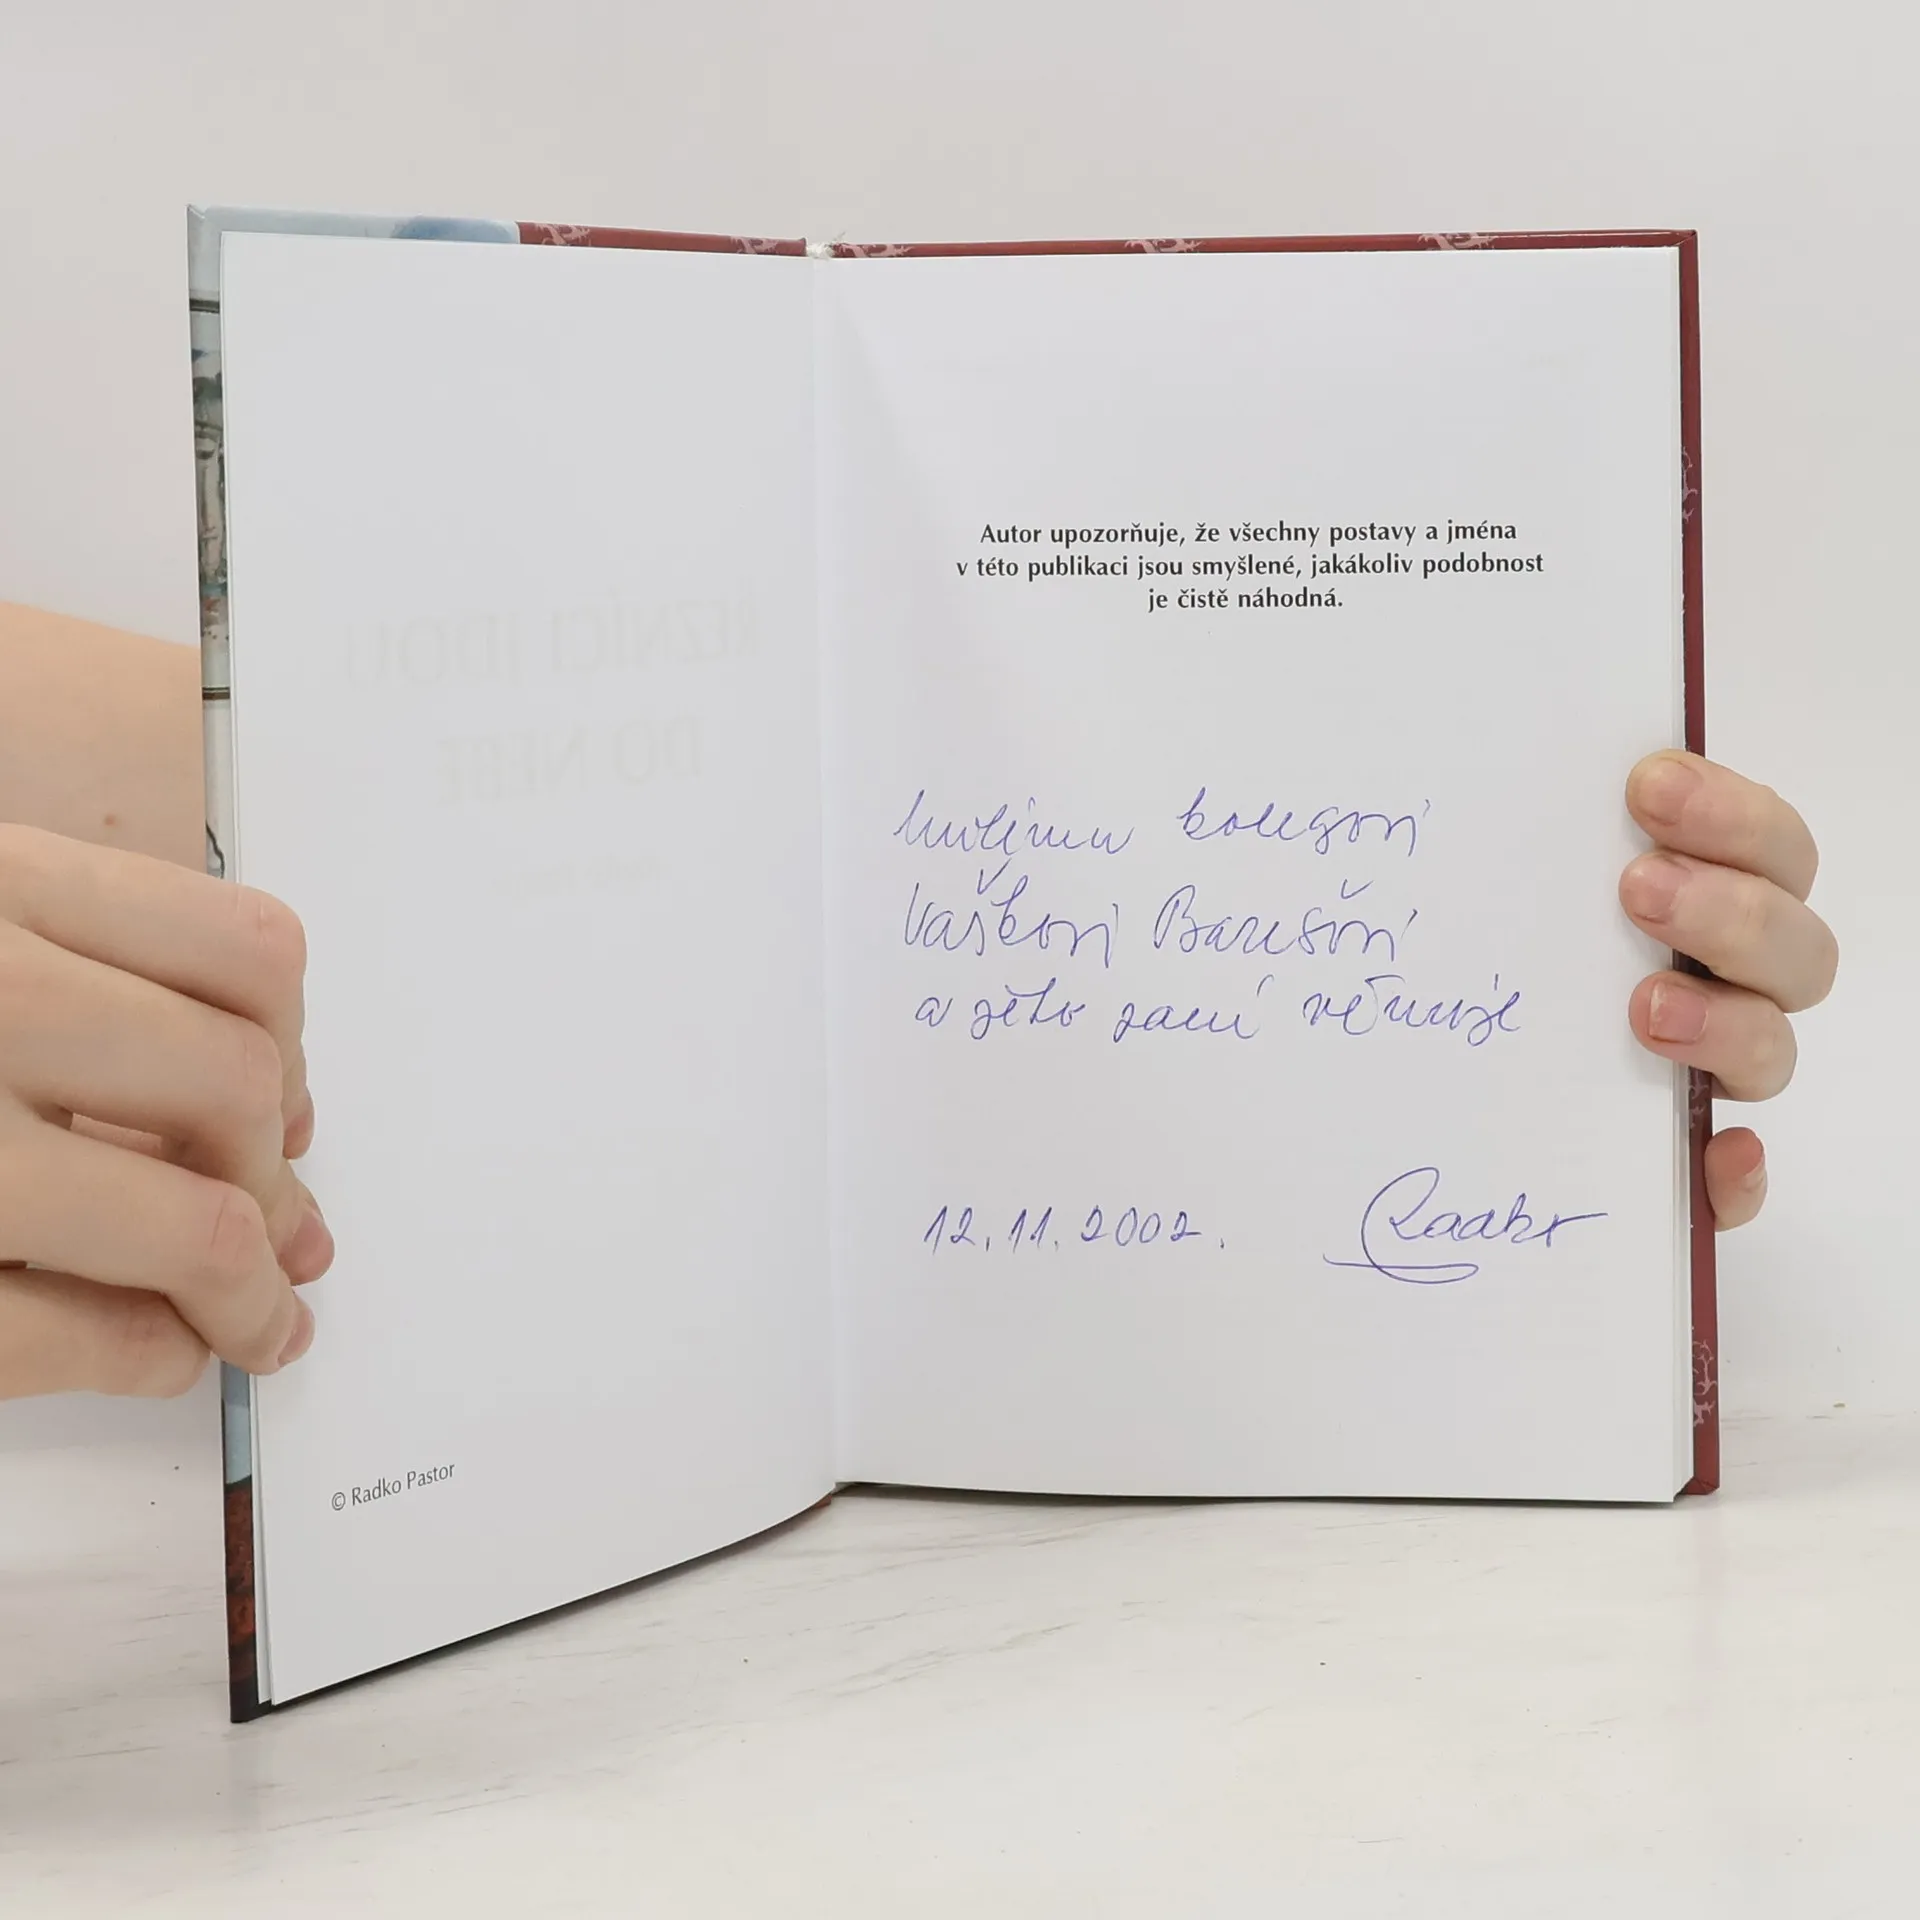 ŘEZNÍCI JDOU
DO NEBE
© Radko Pastor
Autor upozorňuje, že všechny postavy a jména
v této publikaci jsou smyšlené, jakákoliv podobnost
je čistě náhodná.
milému kolegovi
Vaškovi Barešovi
a jeho paní věnuje
12. 11. 2002.
Radko